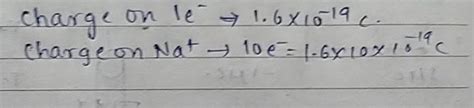 charge on 1e⁻ → 1.6×10⁻¹⁹ C.
Charge on Na⁺ → 10e⁻ = 1.6×10×10⁻¹⁹ C